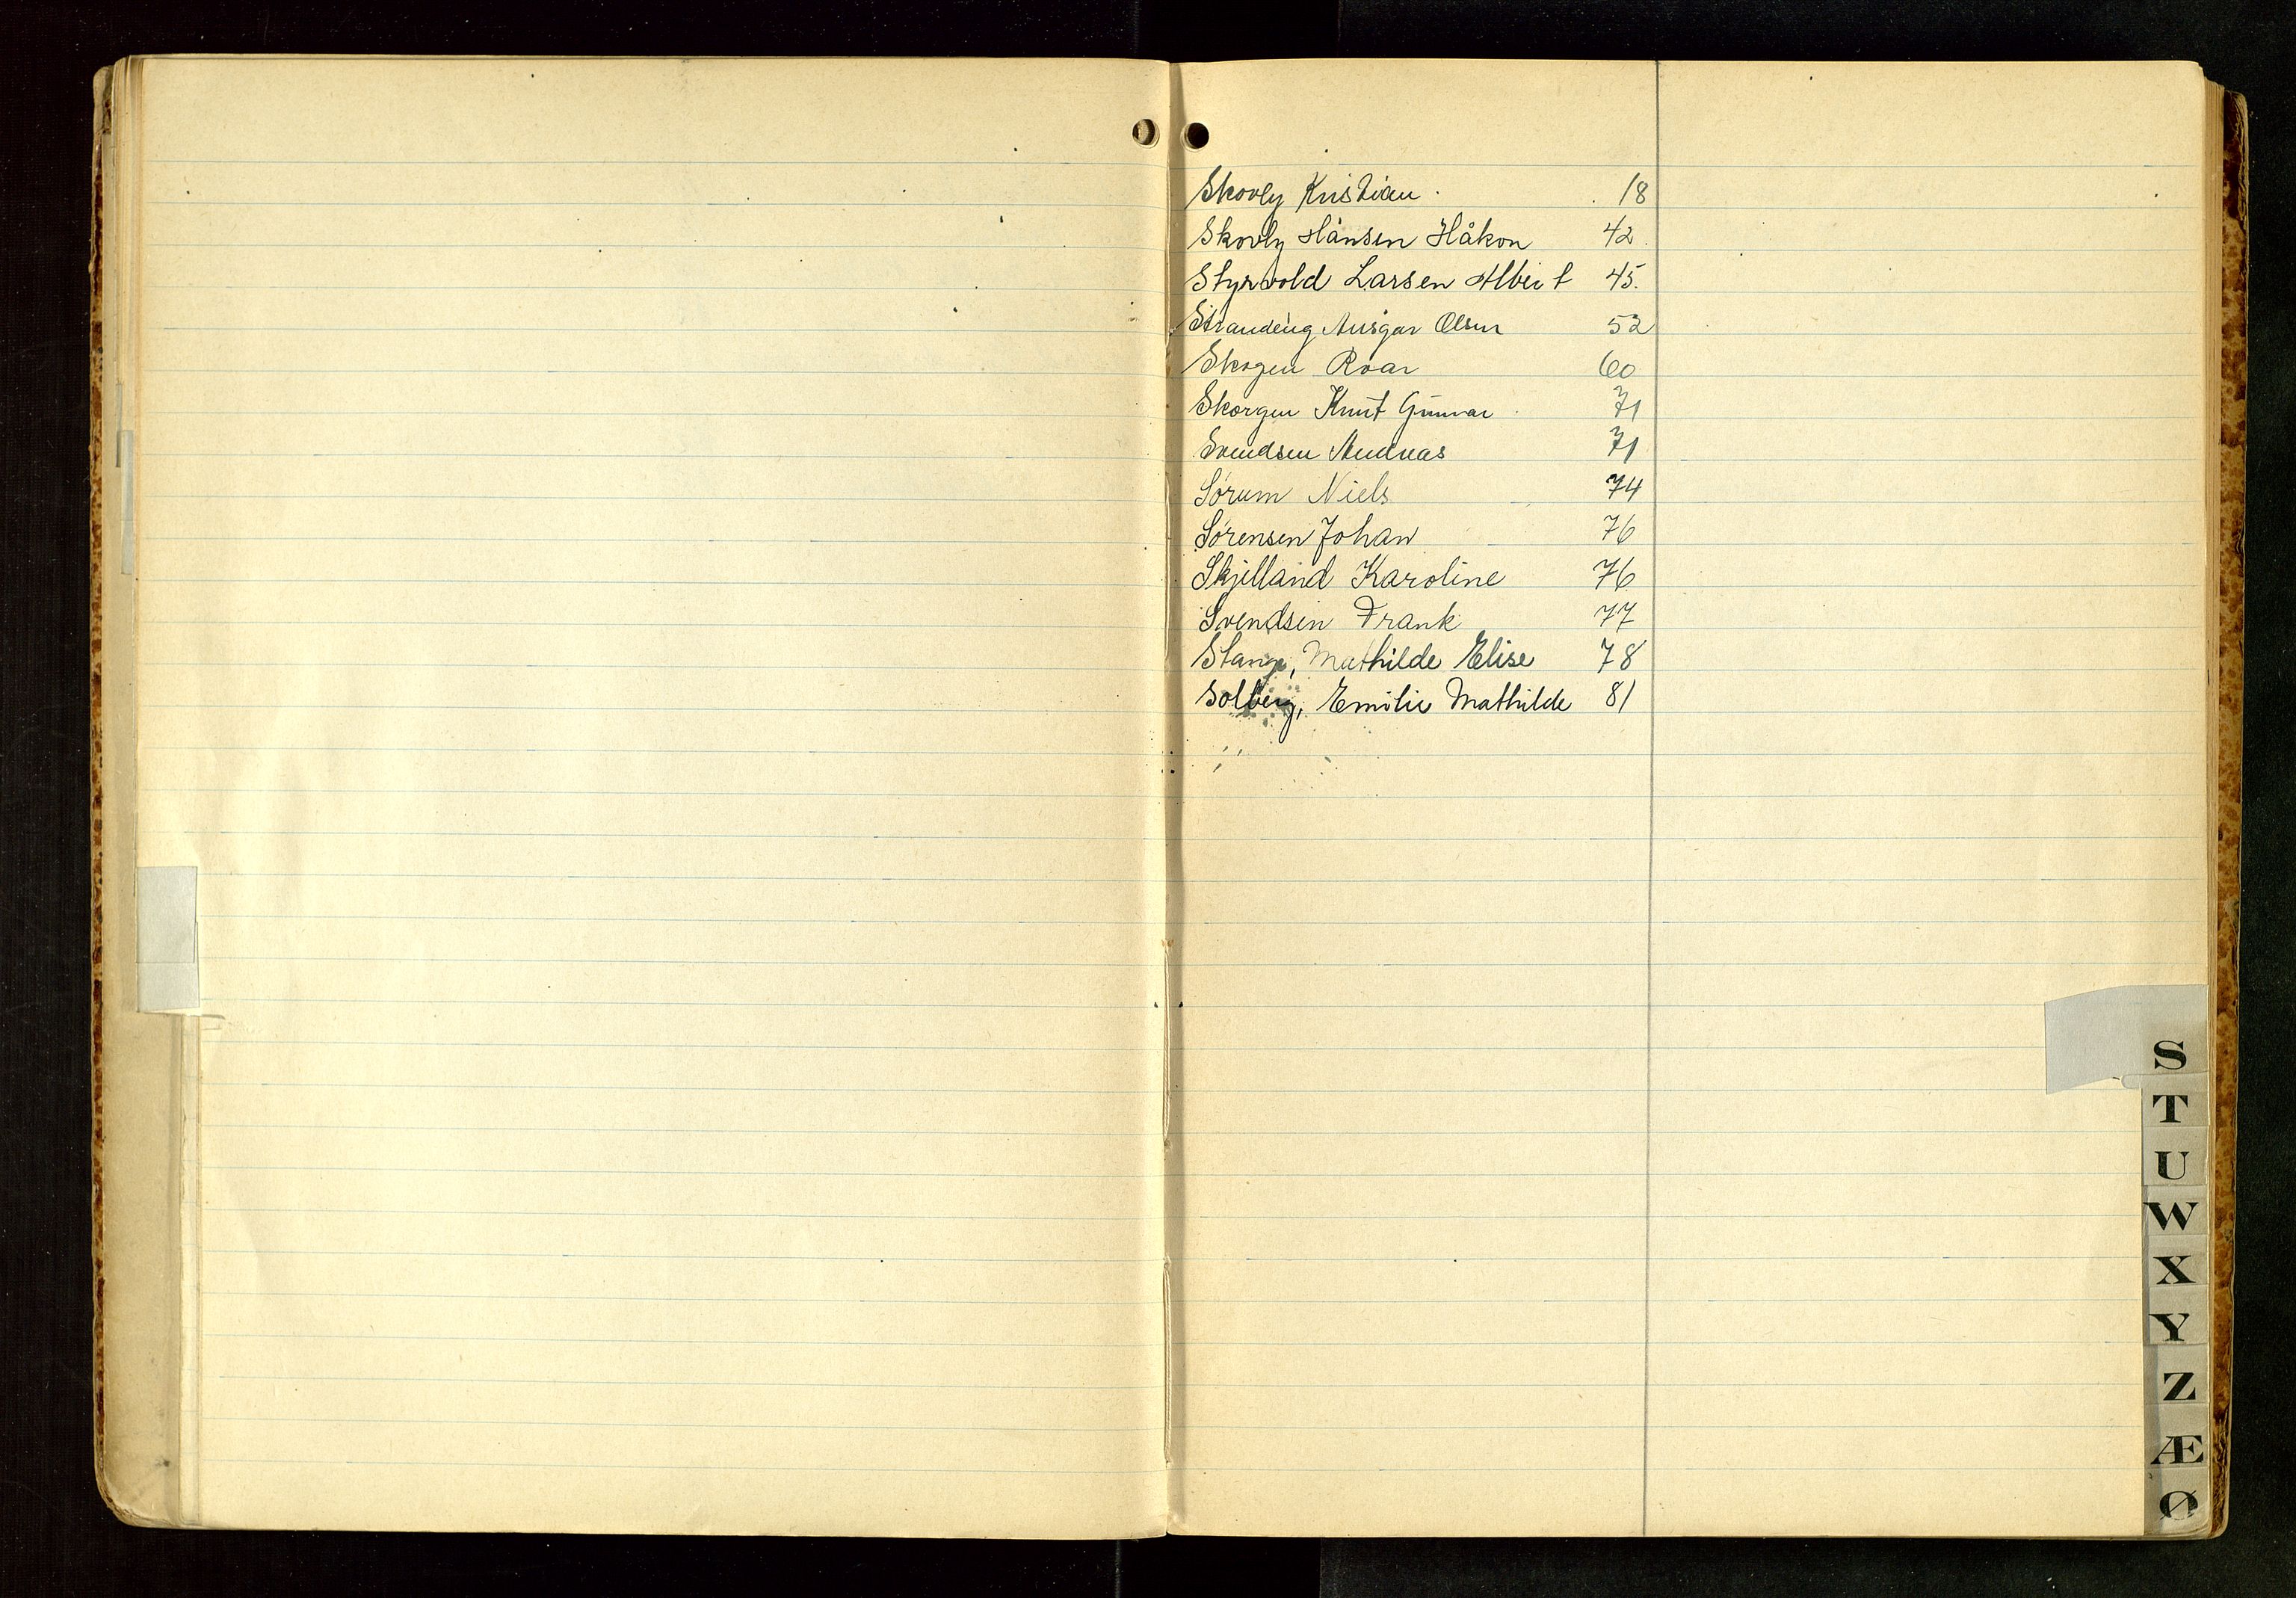 Skovly Kristian. 18
Skovly Hansen Håkon 42
Styrvold Larsen Albert 45.
Strandeng Ansgar Olsen 52
Skogen Roar 60
Skorgen Knut Gunnar 71
Svendsen Andreas 71
Sørum Niels 74
Sørensen Johan 76
Skjelland Karoline 76
Svendsen Frank 77
Stange, Mathilde Elise 78
Solberg, Emilie Mathilde 81
S
T
U
W
X
Y
Z
Æ
Ø